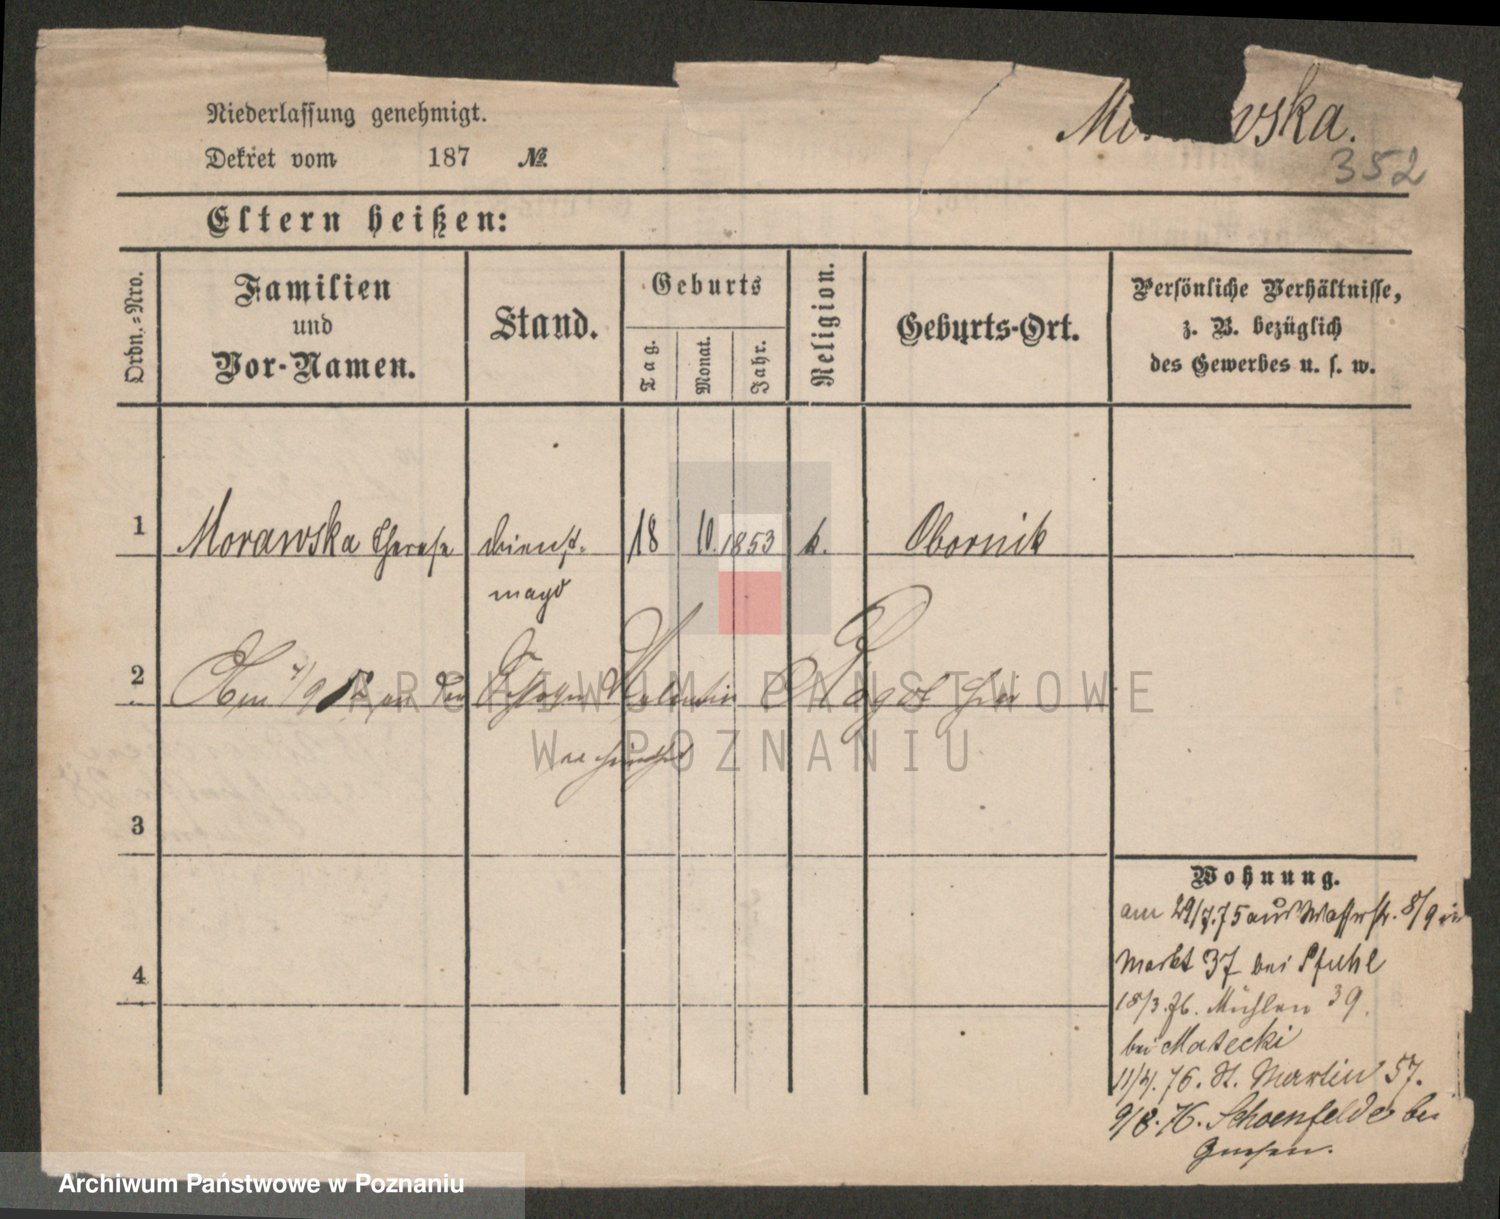 Niederlassung genehmigt.
Dekret vom 187 №
Mo wska.
352
Eltern heißen:
Ordn.-Nro.
Familien und Vor-Namen.
Stand.
Geburts
Tag.
Monat.
Jahr.
Religion.
Geburts-Ort.
Persönliche Verhältnisse,
z. B. bezüglich
des Gewerbes u. s. w.
1 Morawska Therese Dienst- 18 10. 1853 k. Obornik
magd
2 Am 4/9 an den Valentin hier
3
4
Wohnung.
am 29/7.75 aus Wasserstr. 8/9 in
Markt 37 bei Pfuhl
18/3. 76. Mühlen 39.
bei Matecki
11/4. 76. St. Martin 57.
9/8. 76. Schoenfelde bei
Gnesen.
ARCHIWUM PAŃSTWOWE
W POZNANIU
Archiwum Państwowe w Poznaniu